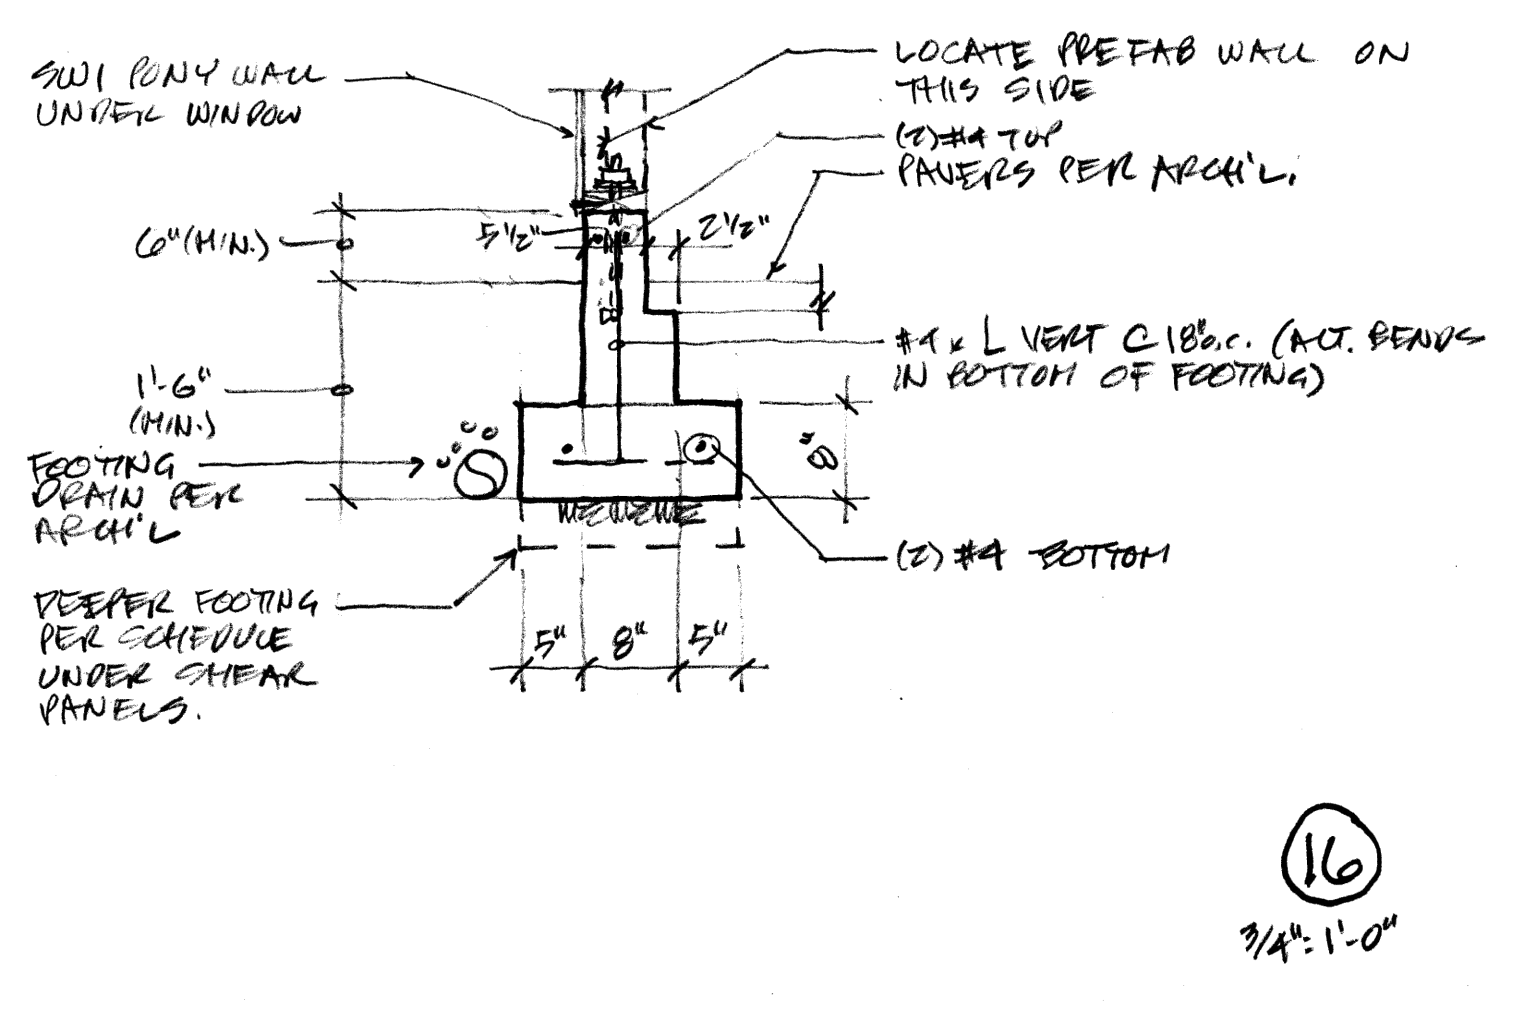 SW1 PONY WALL
UNDER WINDOW
LOCATE PREFAB WALL ON
THIS SIDE
(2) #4 TOP
PAVERS PER ARCH'L.
6" (MIN.)
5 1/2"
2 1/2"
#4 x L VERT @ 18" o.c. (ALT. BENDS
IN BOTTOM OF FOOTING)
1'-6"
(MIN.)
8"
FOOTING
DRAIN PER
ARCH'L
(2) #4 BOTTOM
DEEPER FOOTING
PER SCHEDULE
UNDER SHEAR
PANELS.
5" 8" 5"
16
3/4" = 1'-0"